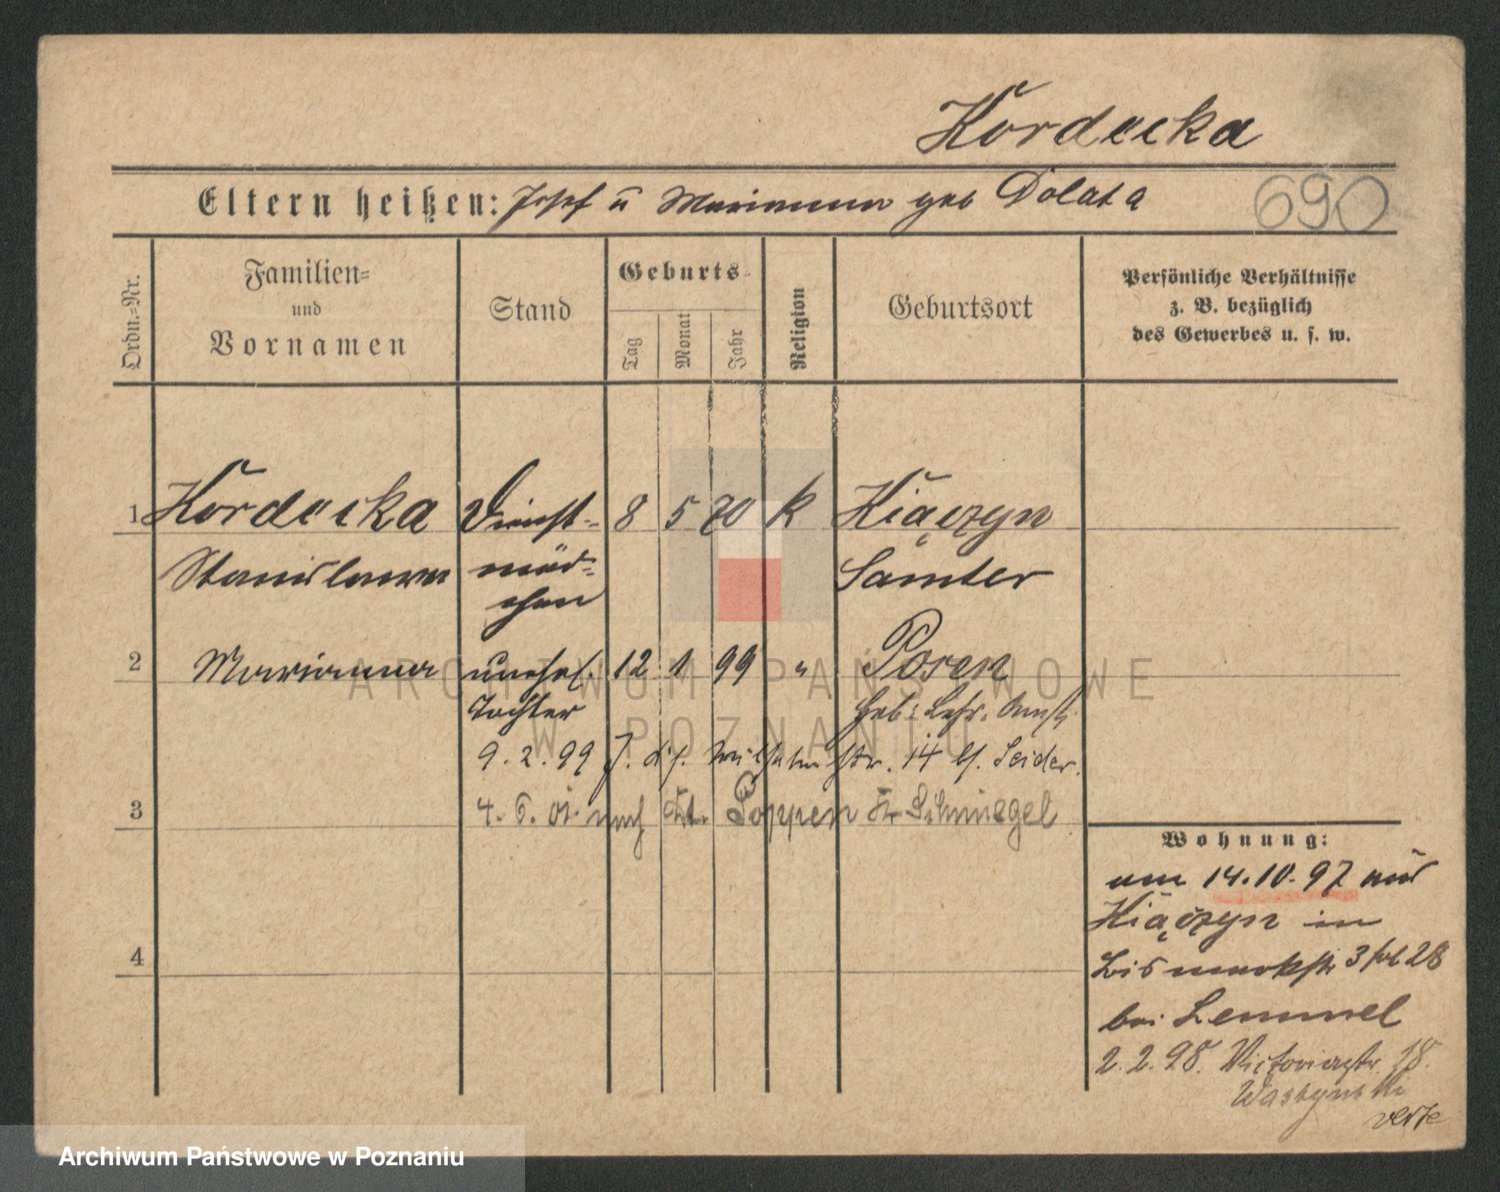 Kordecka
Eltern heißen: Josef u Marianna geb Dolata
690
Ordn.=Nr.
Familien=
und
Vornamen
Stand
Geburts=
Tag
Monat
Jahr
Religion
Geburtsort
Persönliche Verhältnisse
z. B. bezüglich
des Gewerbes u. s. w.
1 Kordecka Dienst- 8 5 70 k Kiączyn
Stanislawa mäd- Samter
chen
2 Marianna unehel. 12 1 99 " Posen
Tochter Heb: Lehr. Anst.
9. 2. 99 14 Seider.
3 4. 6. 01. nach Poppen Kr Schmiegel
4
Wohnung:
am 14.10.97 aus
Kiączyn in
Bismarkstr 3
bei Lemmel
2. 2. 98. Victoriastr. 18.
verte
ARCHIWUM PAŃSTWOWE
W POZNANIU
Archiwum Państwowe w Poznaniu